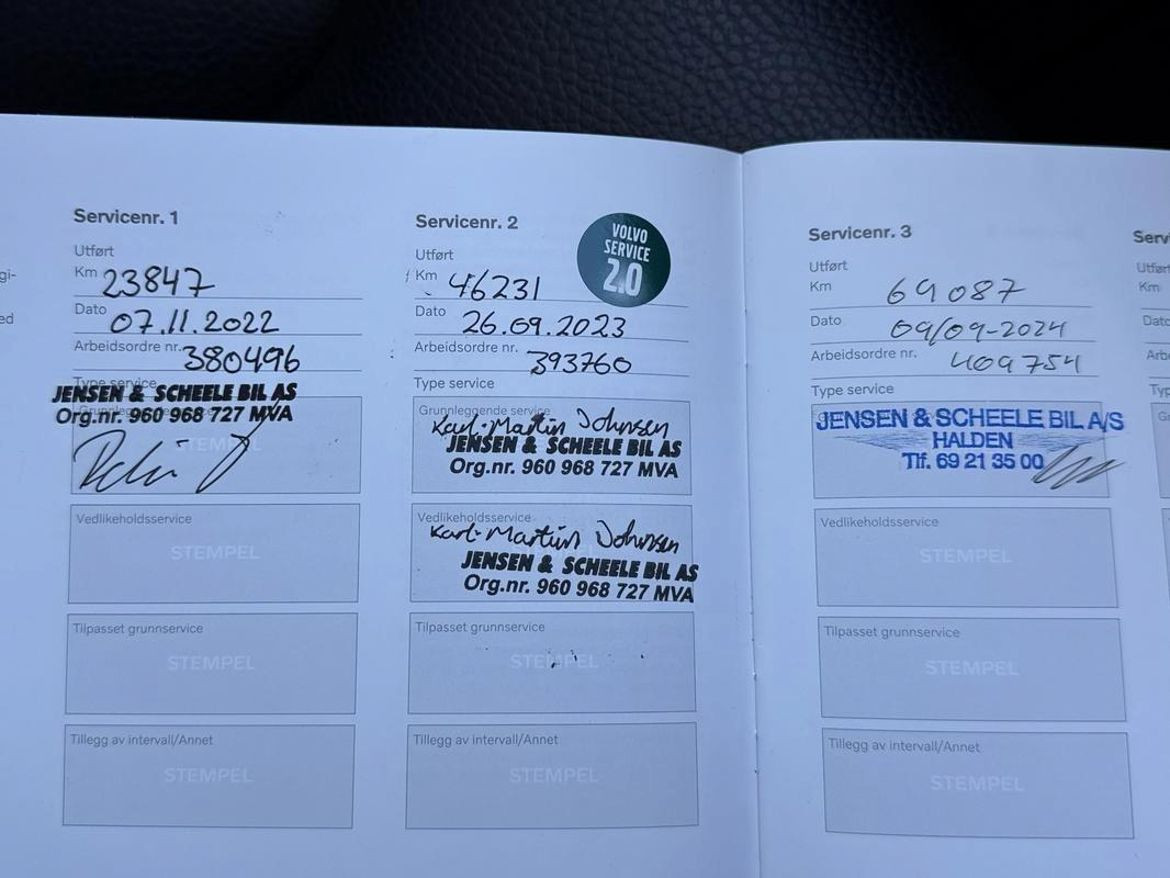 gi-
ed
Servicenr. 1
Utført
Km 23847
Dato 07.11.2022
Arbeidsordre nr. 380496
Type service
JENSEN & SCHEELE BIL AS
Org.nr. 960 968 727 MVA
STEMPEL
Vedlikeholdsservice
STEMPEL
Tilpasset grunnservice
STEMPEL
Tillegg av intervall/Annet
STEMPEL
Servicenr. 2
VOLVO
SERVICE
2.0
Utført
Km 46231
Dato 26.09.2023
Arbeidsordre nr. 393760
Type service
Grunnleggende service
Karl-Martin Johnsen
JENSEN & SCHEELE BIL AS
Org.nr. 960 968 727 MVA
Vedlikeholdsservice
Karl-Martin Johnsen
JENSEN & SCHEELE BIL AS
Org.nr. 960 968 727 MVA
Tilpasset grunnservice
STEMPEL
Tillegg av intervall/Annet
STEMPEL
Servicenr. 3
Utført
Km 69087
Dato 09/09-2024
Arbeidsordre nr. 409754
Type service
JENSEN & SCHEELE BIL A/S
HALDEN
Tlf. 69 21 35 00
Vedlikeholdsservice
STEMPEL
Tilpasset grunnservice
STEMPEL
Tillegg av intervall/Annet
STEMPEL
Serv
Utført
Km
Dato
Arbe
Typ